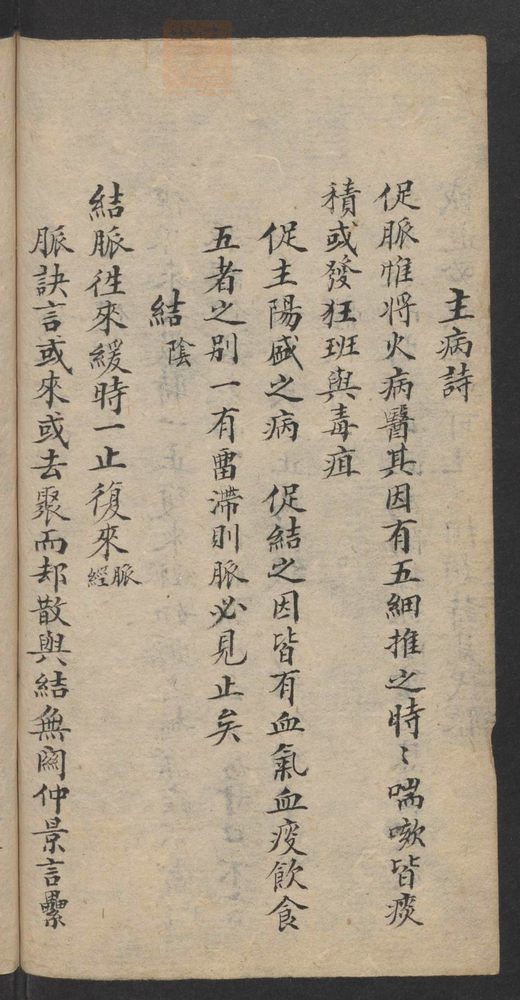 主病詩
促脈惟將火病醫其因有五細推之時〻喘嗽皆痰
積或發狂班與毒疽
促主陽盛之病 促結之因皆有血氣血疫飲食
五者之別一有畱滯則脈必見止矣
結 陰
結脈徃來緩時一止復來脈經
脈訣言或來或去聚而却散與結無関仲景言纍